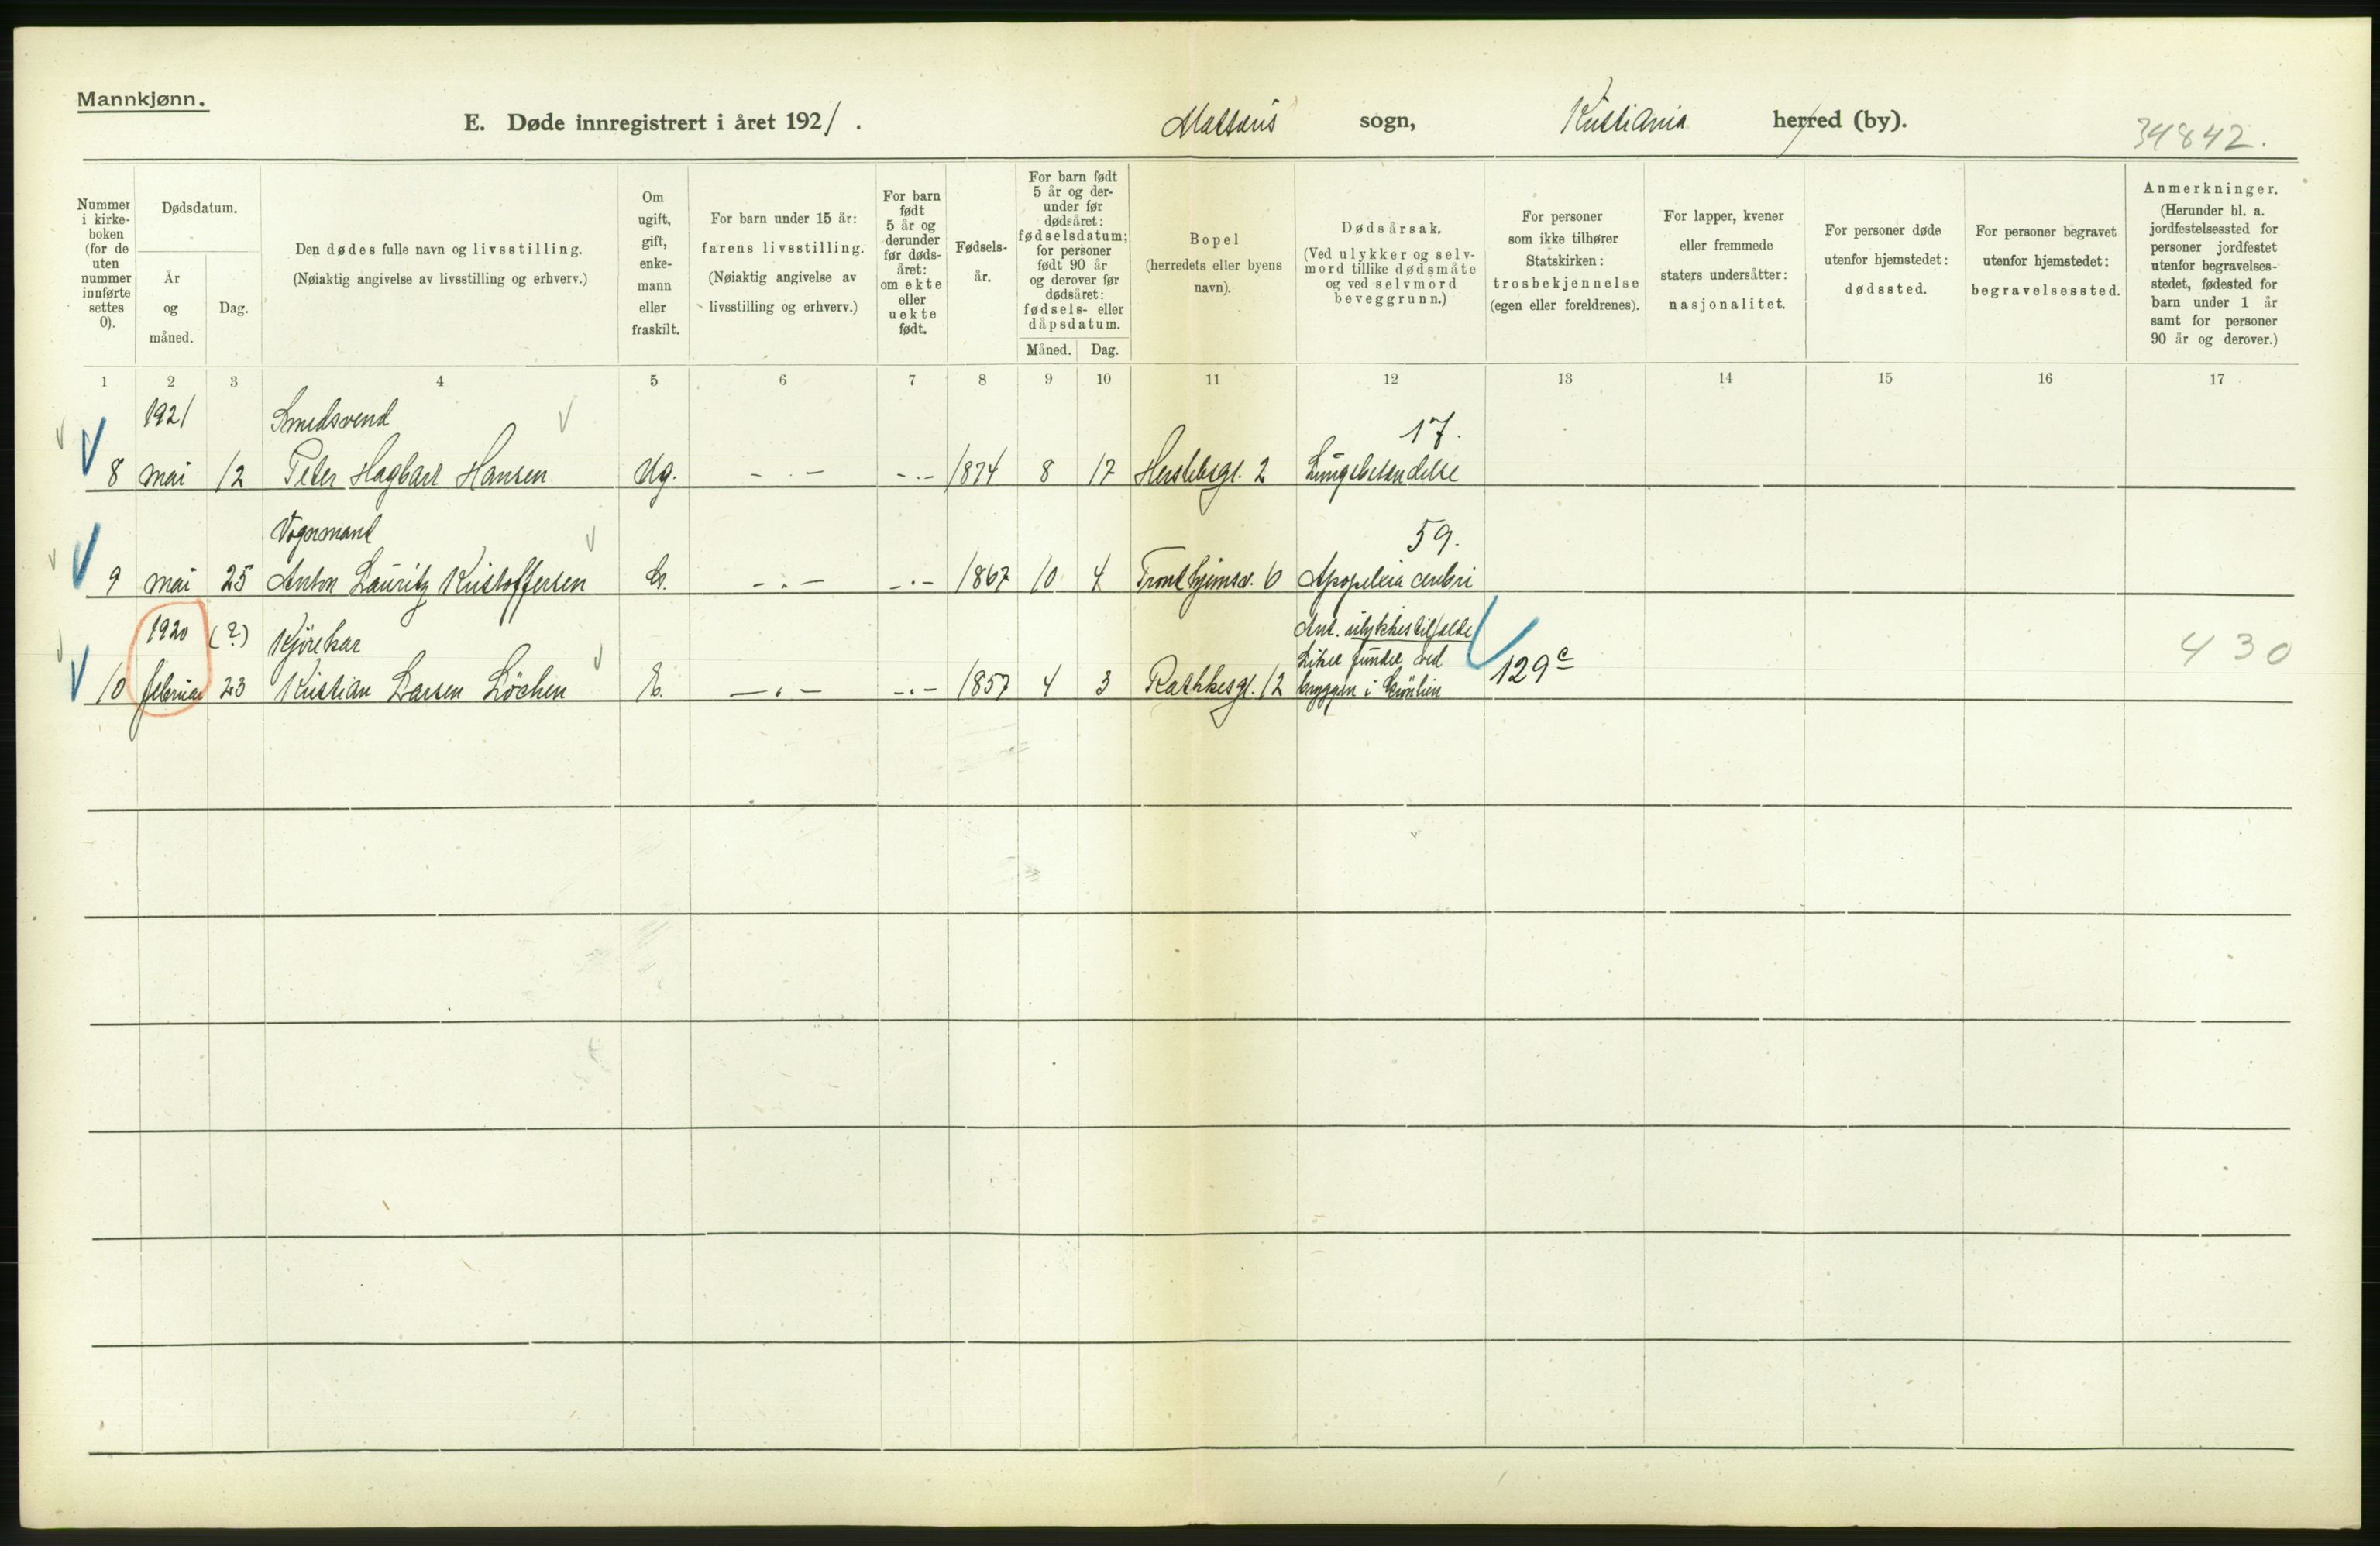 Mannkjønn.
E. Døde innregistrert i året 1921.
Mattæus sogn, Kristiania herred (by).
34842.
Nummer i kirke-boken (for de uten nummer innførte settes 0).
Dødsdatum.
År og måned.
Dag.
Den dødes fulle navn og livsstilling.
(Nøiaktig angivelse av livsstilling og erhverv.)
Om ugift, gift, enke-mann eller fraskilt.
For barn under 15 år: farens livsstilling.
(Nøiaktig angivelse av livsstilling og erhverv.)
For barn født 5 år og derunder før døds-året: om ekte eller uekte født.
Fødsels-år.
For barn født 5 år og der-under før dødsåret: fødselsdatum; for personer født 90 år og derover før dødsåret: fødsels- eller dåpsdatum.
Måned. Dag.
Bopel (herredets eller byens navn).
Dødsårsak.
(Ved ulykker og selv-mord tillike dødsmåte og ved selvmord beveggrunn.)
For personer som ikke tilhører Statskirken: trosbekjennelse (egen eller foreldrenes).
For lapper, kvener eller fremmede staters undersåtter: nasjonalitet.
For personer døde utenfor hjemstedet: dødssted.
For personer begravet utenfor hjemstedet: begravelsessted.
Anmerkninger.
(Herunder bl. a. jordfestelsessted for personer jordfestet utenfor begravelses-stedet, fødested for barn under 1 år samt for personer 90 år og derover.)
1 2 3 4 5 6 7 8 9 10 11 12 13 14 15 16 17
1921 Smedsvend 17.
8 mai 12 Peter Hagbart Hansen Ug. - . - - . - 1874 8 17 Herslebsgt. 2 Lungebetændelse
Vognmand 59.
9 mai 25 Anton Lauritz Kristoffersen G. - . - - . - 1867 10 4 Trondhjemsv. 6 Apoplexia cerebri
1920 (?) Kjørekar Ant. ulykkestilfælde
Liket fundet ved
10 februar 23 Kristian Larsen Löchen E. - . - - . - 1857 4 3 Rathkesgt. 12 bryggen i Grönlien 129 c 430